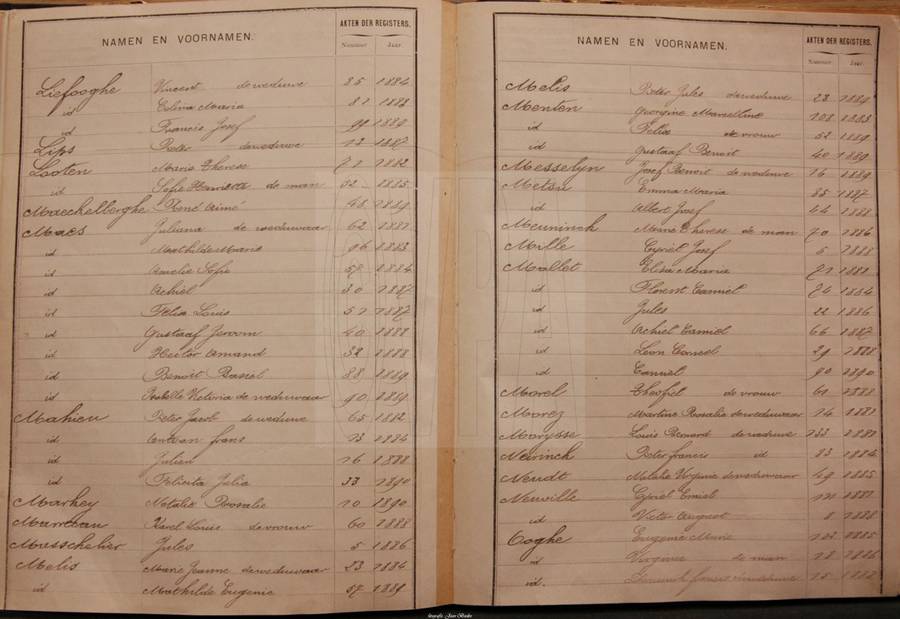 NAMEN EN VOORNAMEN. AKTEN DER REGISTERS.
Nummer Jaar.
Liefooghe Vincent de weduwe 85 1884
id Celina Maria 81 1883
id Francis Josef 99 1889
Lips Pieter de weduwe 12 1887
Looten Marie Therese 71 1882
id Sofie Henriette de man 102 1885
Maechelberghe René Aimé 48 1889
Maes Juliana de weduwaar 62 1881
id Mathilde Maria 96 1883
id Amelie Sofie 57 1884
id Achiel 30 1887
id Felix Louis 51 1887
id Gustaaf Jeroom 40 1888
id Hector Amand 32 1888
id Benoit 88 1889
id Isabelle Victoria de weduwaar 90 1889
Mahieu Pieter Jacob de weduwe 65 1882
id frans 13 1884
id Julien 16 1888
id Felicita Julia 33 1890
Markey Natalie Rosalie 10 1890
Karel Louis de vrouw 60 1888
Masschelier Jules 5 1886
Melis Marie Jeanne de weduwaar 23 1886
id Mathilde Eugenie 57 1889
NAMEN EN VOORNAMEN. AKTEN DER REGISTERS.
Nummer Jaar.
Melis Pieter Jules de weduwe 23 1889
Menten Georgine Marcelline 108 1883
id Felix de vrouw 52 1889
id Gustaaf Benoit 40 1889
Messelyn Josef Benoit de weduwe 16 1889
Metsu Emma Maria 85 1887
id Albert Josef 44 1888
Meuninck Marie Therese de man 70 1886
Mille Cyriel Josef 5 1888
Mollet Elisa Maria 71 1881
id Florent Camiel 74 1884
id Jules 22 1886
id Achiel Camiel 66 1887
id Leon 29 1888
id Camiel 90 1890
Morel Theofiel de vrouw 61 1888
Morez Martine Rosalie de weduwaar 14 1881
Maryssse Louis Bernard de weduwe 133 1882
Neirinck Pieter francis id 83 1884
Neudt Natalie Virginie de weduwaar 49 1885
Neuville Cyriel Emiel 111 1881
id Victor August 8 1888
Ooghe Eugenie Marie 102 1885
id Virginie de man 18 1886
id. 15 1882